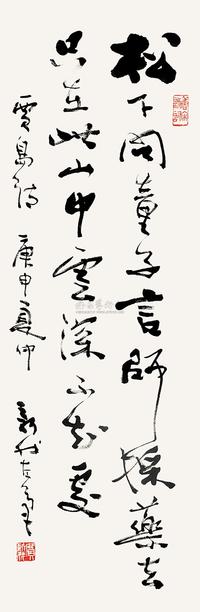 松下問童子言師採藥去
只在此山中雲深不知處
賈島詩 庚申夏仲 新我左筆